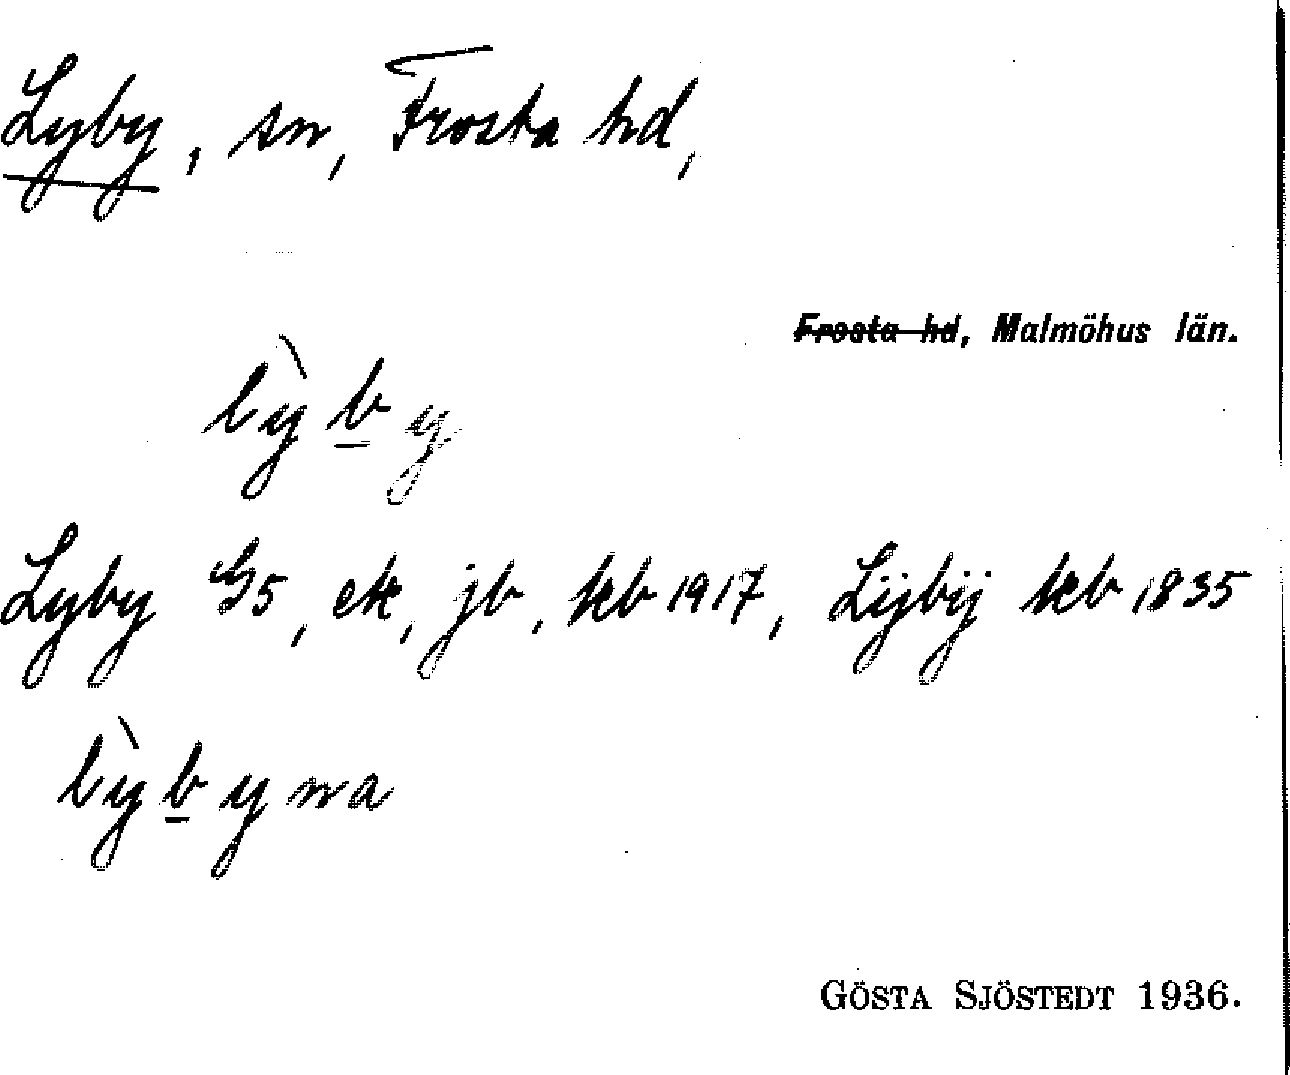 Lyby, sn, Frosta hd,
Frosta hd, Malmöhus län.
lỳby
Lyby G5, ek, jb, kb 1917, Lÿbÿ kb 1835
lỳbyna
GÖSTA SJÖSTEDT 1936.